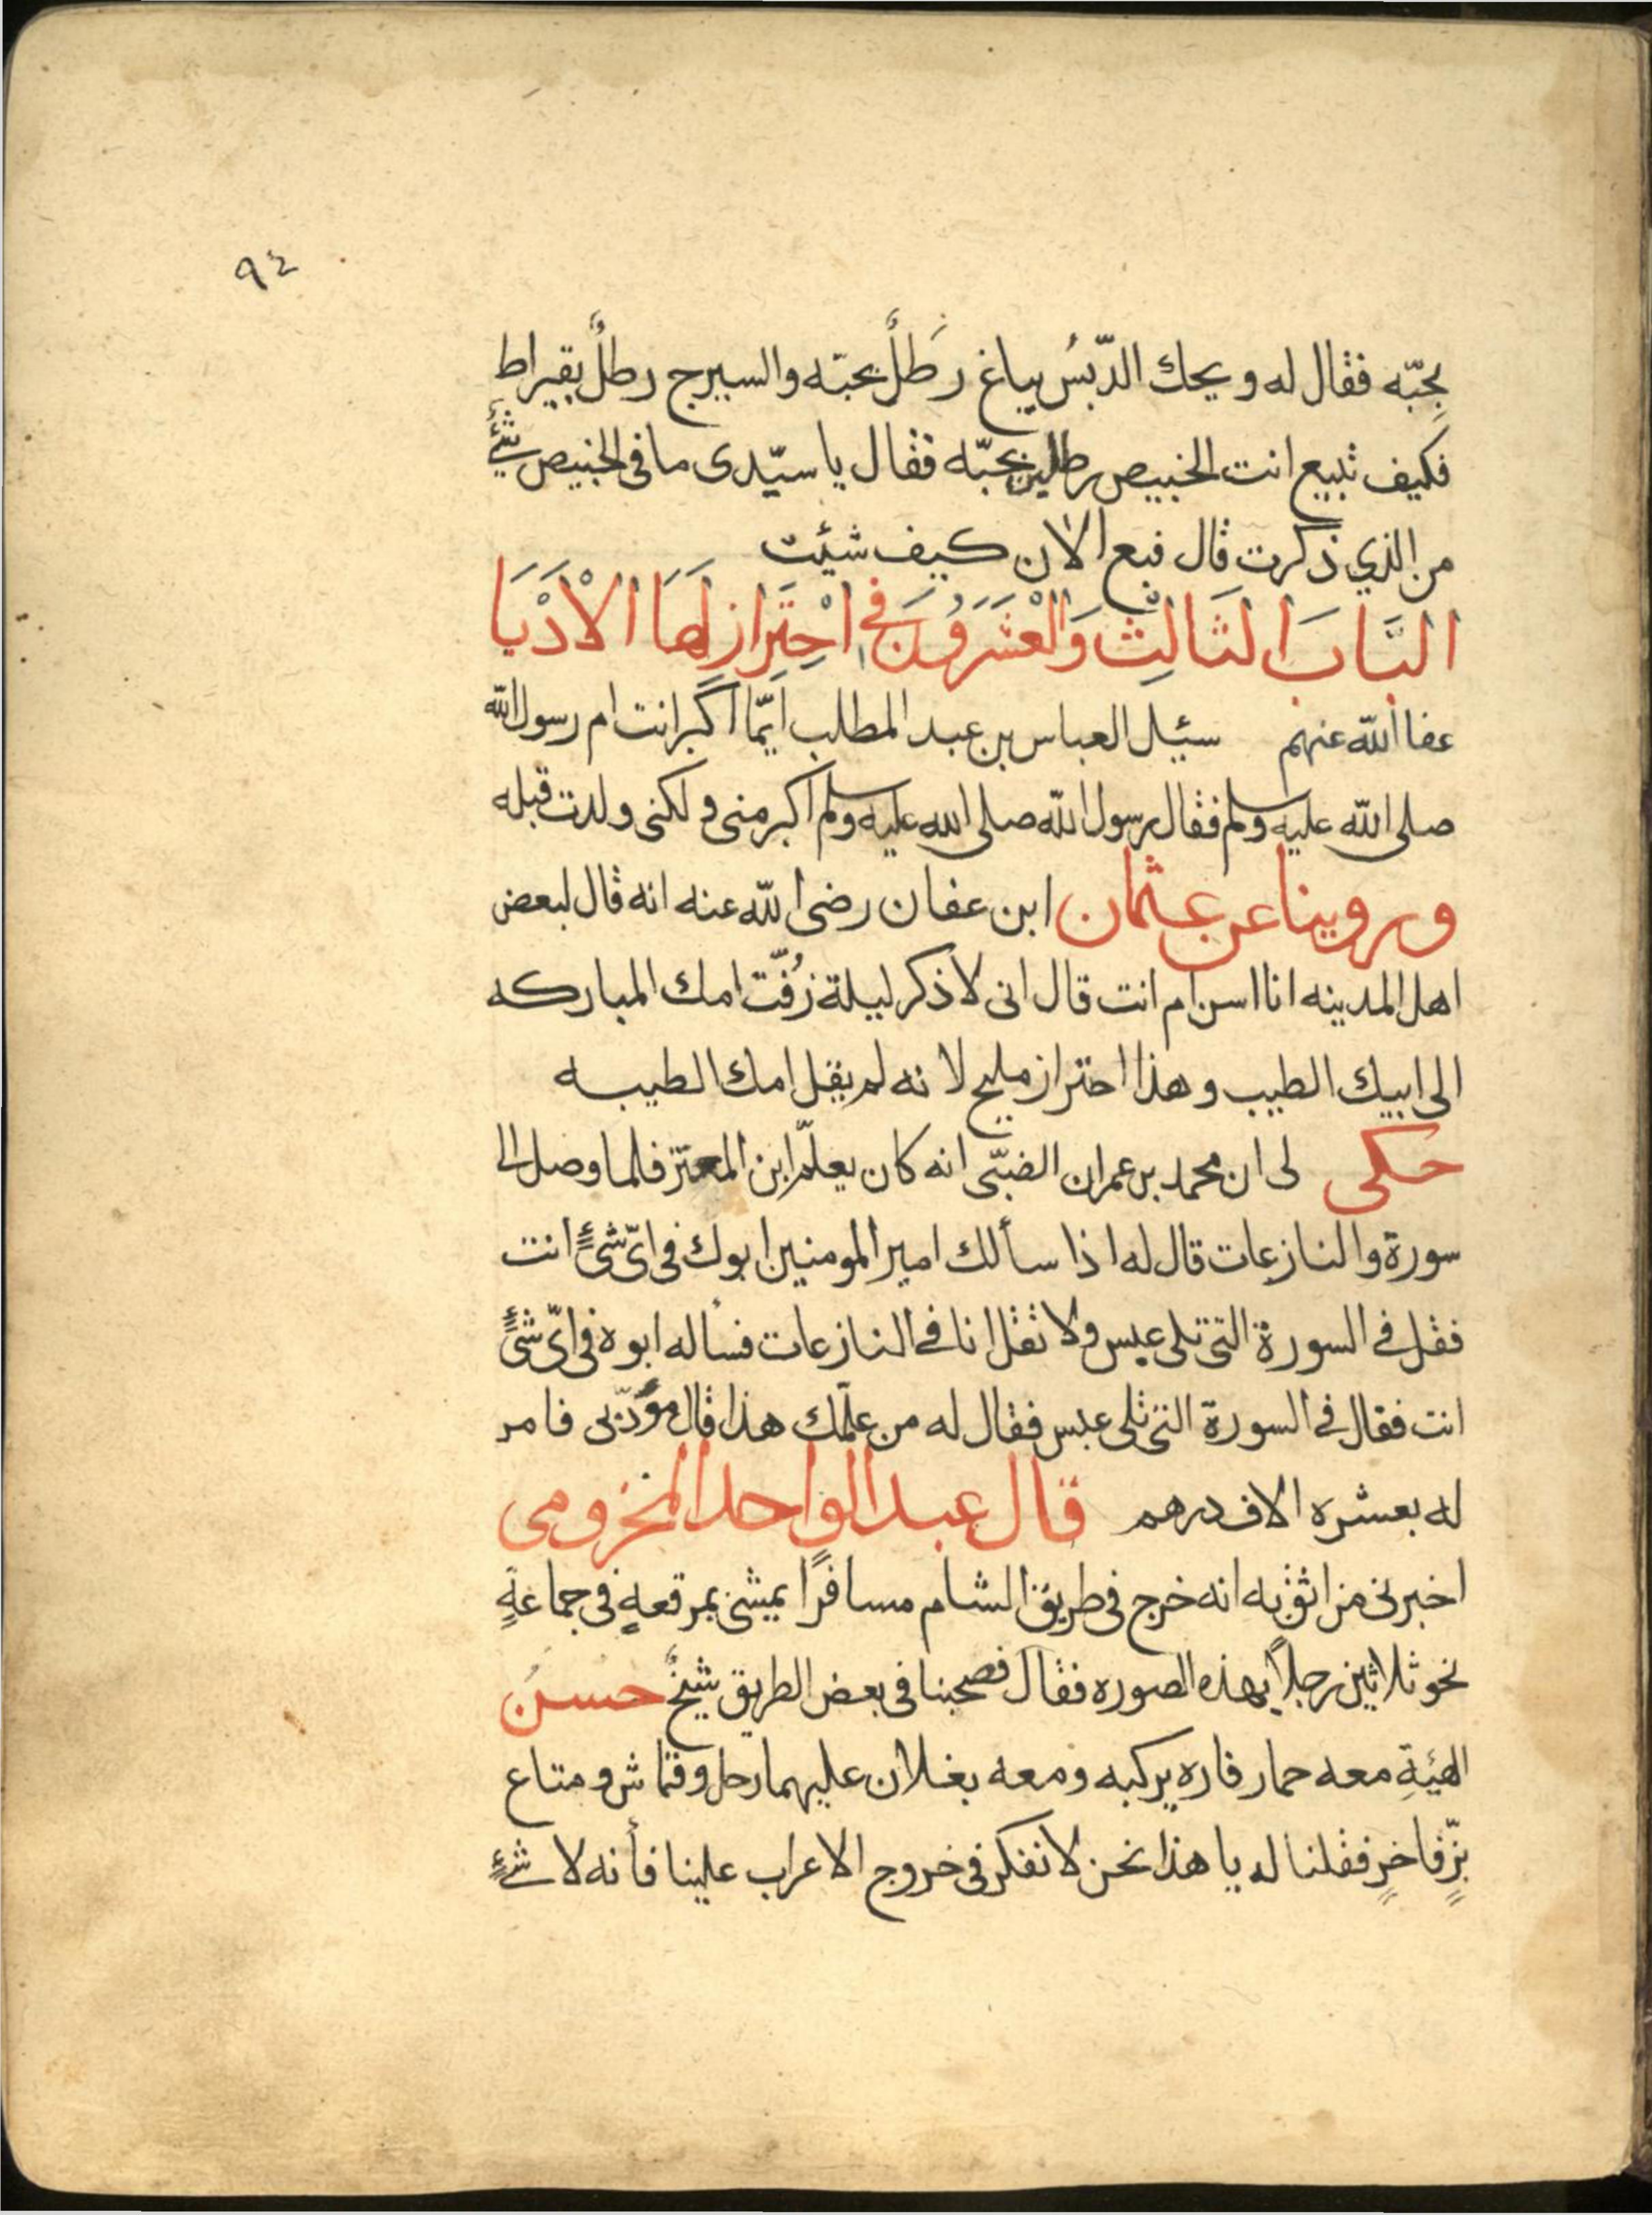 ٩٤
بحبّه فقال له ويحك الدّبسُ يباع رَطلٌ بحبّه والسيرج رطلٌ بقيراط
فكيف تبيع انت الخبيص رطلين بحبّه فقال يا سيّدى ما فى الخبيص شيٌ
من الذي ذكرت قال فبع الان كيف شئت
البَاب الثَالِث وَالْعشَرَوُنَ في احْتِرَازِ لهَا الاْدَبَا
عفا الله عنهم سئيل العباس بن عبد المطلب ايّما اكبر انت ام رسول الله
صلى الله عليه وسلم فقال رسول الله صلى الله عليه وسلم اكبر منى ولكنى ولدت قبله
وروينا عن عثمان ابن عفان رضى الله عنه انه قال لبعض
اهل المدينه انا اسن ام انت قال انى لاذكر ليلة زُفّت امك المباركه
الى ابيك الطيب وهذا احتراز مليح لانه لم يقل امك الطيبه
حكى لى ان محمد بن عمران الضبّى انه كان يعلّم ابن المعتز فلما وصل الى
سورة والنازعات قال له اذا سألك امير المومنين ابوك فى اىّ شئٍ انت
فقل في السورة التى تلى عبس ولا تقل انا في النازعات فسأله ابوه فى اىّ شئٍ
انت فقال في السورة التى تلى عبس فقال له من علّمك هذا قال مؤدّبى فامر
له بعشره الاف درهم قال عبد الواحد المخزومى
اخبرنى من اثق به انه خرج فى طريق الشام مسافرًا يمشى بمرقعهٍ فى جماعةٍ
نحو ثلاثين رجلاً بهذه الصوره فقال فصحبنا فى بعض الطريق شيخٌ حسنُ
الهيئةِ معه حمار فاره يركبه ومعه بغلان عليهما رحل وقماش ومتاع
بزٍّ فاخرٍ فقلنا له يا هذا نحن لا نفكر فى خروج الاعراب علينا فأنه لا شئٍ